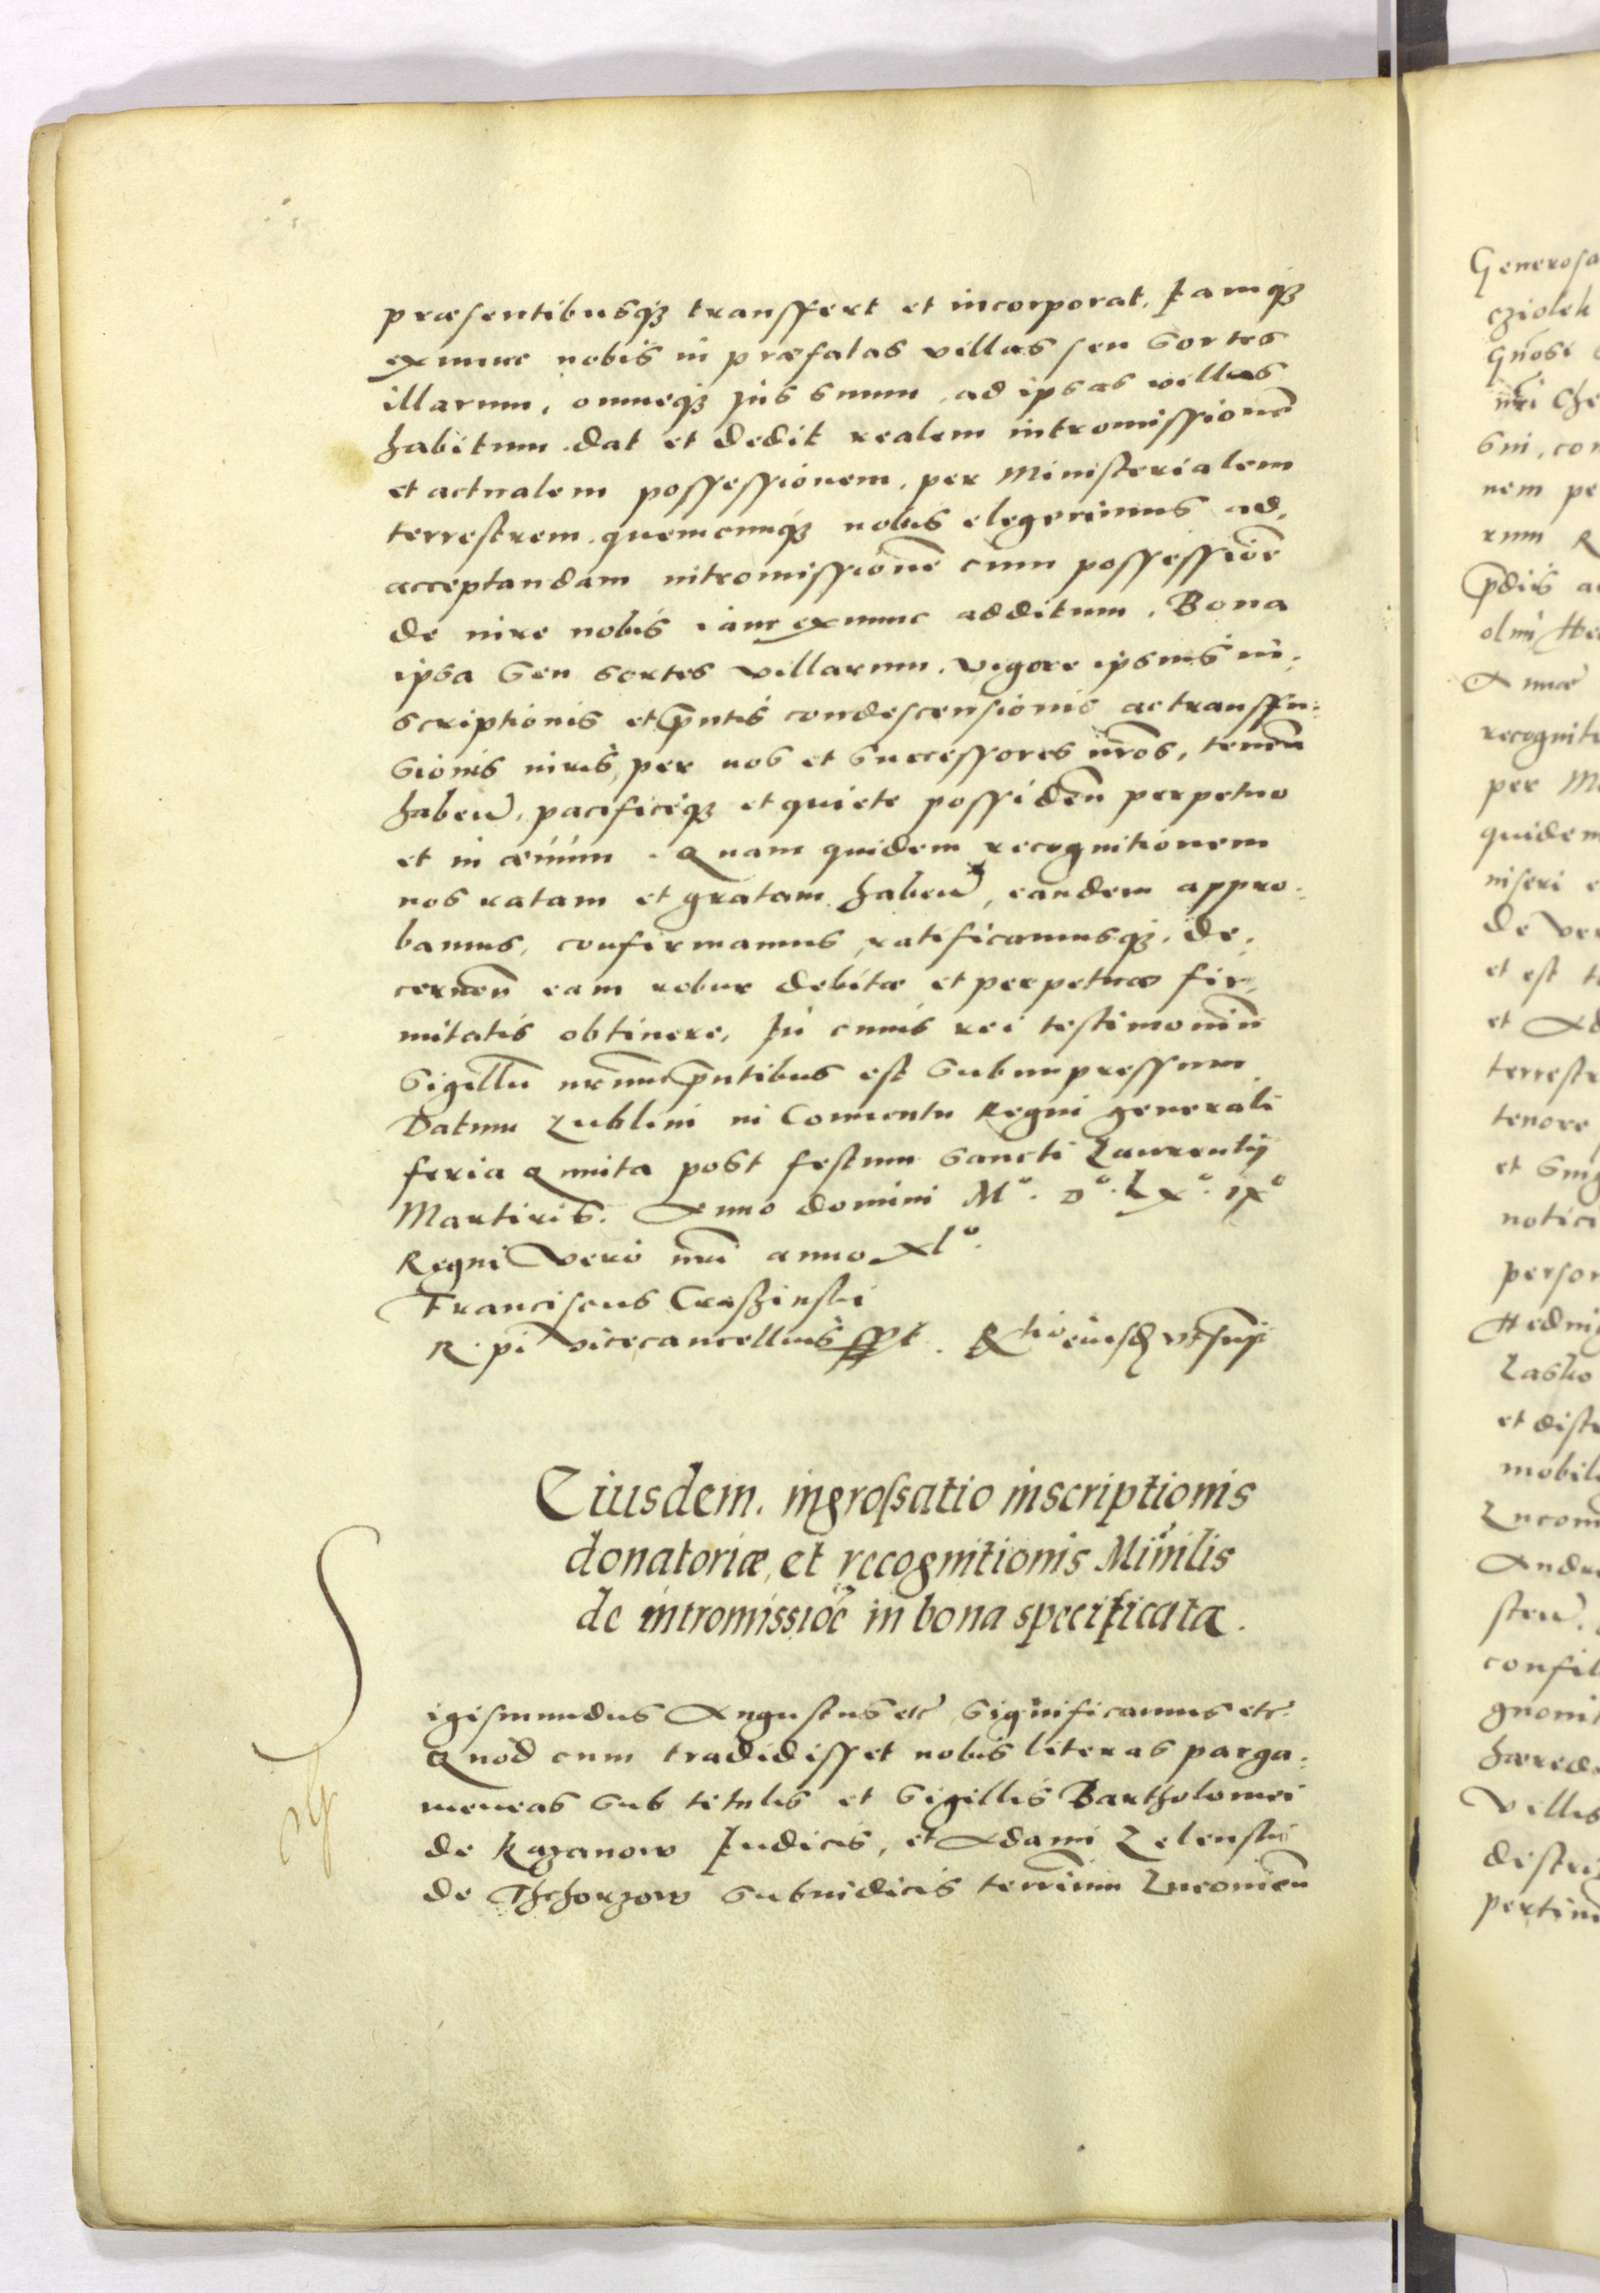 præsentibusq₃ transffert et incorporat. Iamq₃
ex nunc nobis in præfatas villas seu sortes
illarum, omneq₃ jus suum, ad ipsas villas
habitum dat et dedit realem intromissionē
et actualem possessionem, per Ministerialem
terrestrem, quemcunq₃ nobis elegerimus ad,
acceptandam intromissionē cum possessiōe
de iure nobis iam ex nunc additum. Bona
ipsa seu sortes villarum, vigore ipsius in,
scriptionis et p̄ntis condescensionis ac transffu:
sionis iuris, per nos et successores nr̄os, tenen̄
haben̄, pacificeq₃ et quiete possiden̄ perpetuo
et in æuum. Quam quidem recognitionem
nos ratam et gratam haben̄, eandem appro:
bamus, confirmamus, ratificamusq₃. de,
cernen̄ eam robur debitæ et perpetuæ fir,
mitatis obtinere, In cuius rei testimoniū
Sigillū nr̄um p̄ntibus est subimpressum
Datum Lublini in Conuentu Regni generali
feria quinta post festum sancti Laurentij
Martiris. Anno domini Mº. Dº. Lxº. ixº
Regni vero nr̄i anno Xlº.
Franciscus Craszinski
R. pi vicecancellarius sspt. Rtio eiusd vt supr
Eiusdem. ingrossatio inscriptionis
donatoriæ, et recognitionis Miñilis
de intromissiōe in bona specificata.
Sigismundus Augustus etc significamus etc.
Quod cum tradidisset nobis literas parga:
meneas sub titulis et sigillis Bartholomei
de Kazanow Iudicis, et Adami Zelenski
de Thchorzow subiudicis terrārum Lucoūien̄
Generosa
cziolek
Gn̄osi
nr̄i Che
sui, con
nem pe
rum R
p̄diis a
olim He
Annæ
recognit
per Mi
quidem
inseri e
de ver
et est t
et Ad
terrestr
tenore
et sing
notici
person
Hedwi
Lasko
et distr
mobil
Lucom
Andre
sten̄.
consil
gnomi
hæred
villis
destri
pertin